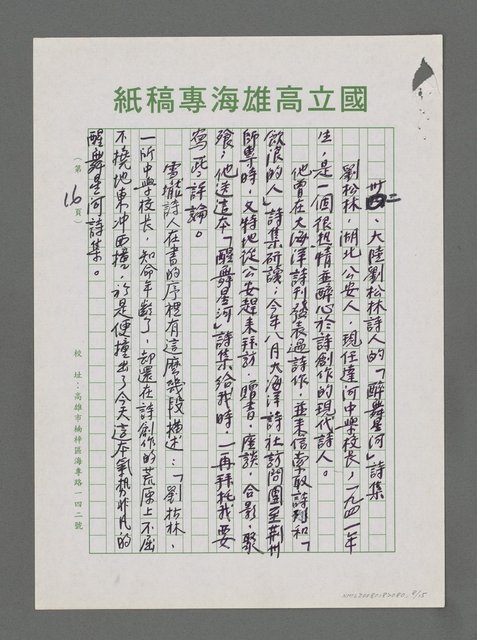 國立高雄海專稿紙
卅二、大陸劉松林詩人的「醉舞星河」詩集
劉松林，湖北公安人，現任達河中學校長，一九四一年
生，是一個很熱情並醉心於詩創作的現代詩人。
他曾在大海洋詩刊發表過詩作，並來信索取詩刊和「
欲浪的人」詩集研讀；今年八月大海洋詩社訪問團至荊州
師專時，又特地從公安趕來拜訪、贈書、座談、合影、聚
飧，他送這本「醒舞星河」詩集給我時，一再拜托我要
寫些評論。
雪壠詩人在書的序裡有這麼幾段描述：「劉松林，
一所中學校長，知命年齡了，却還在詩創作的荒原上不屈
不撓地東沖西撞，於是便撞出了今天這本氣勢非凡的
醒舞星河詩集。
（第16頁）
校 址：高雄市楠梓區海專路一四二號